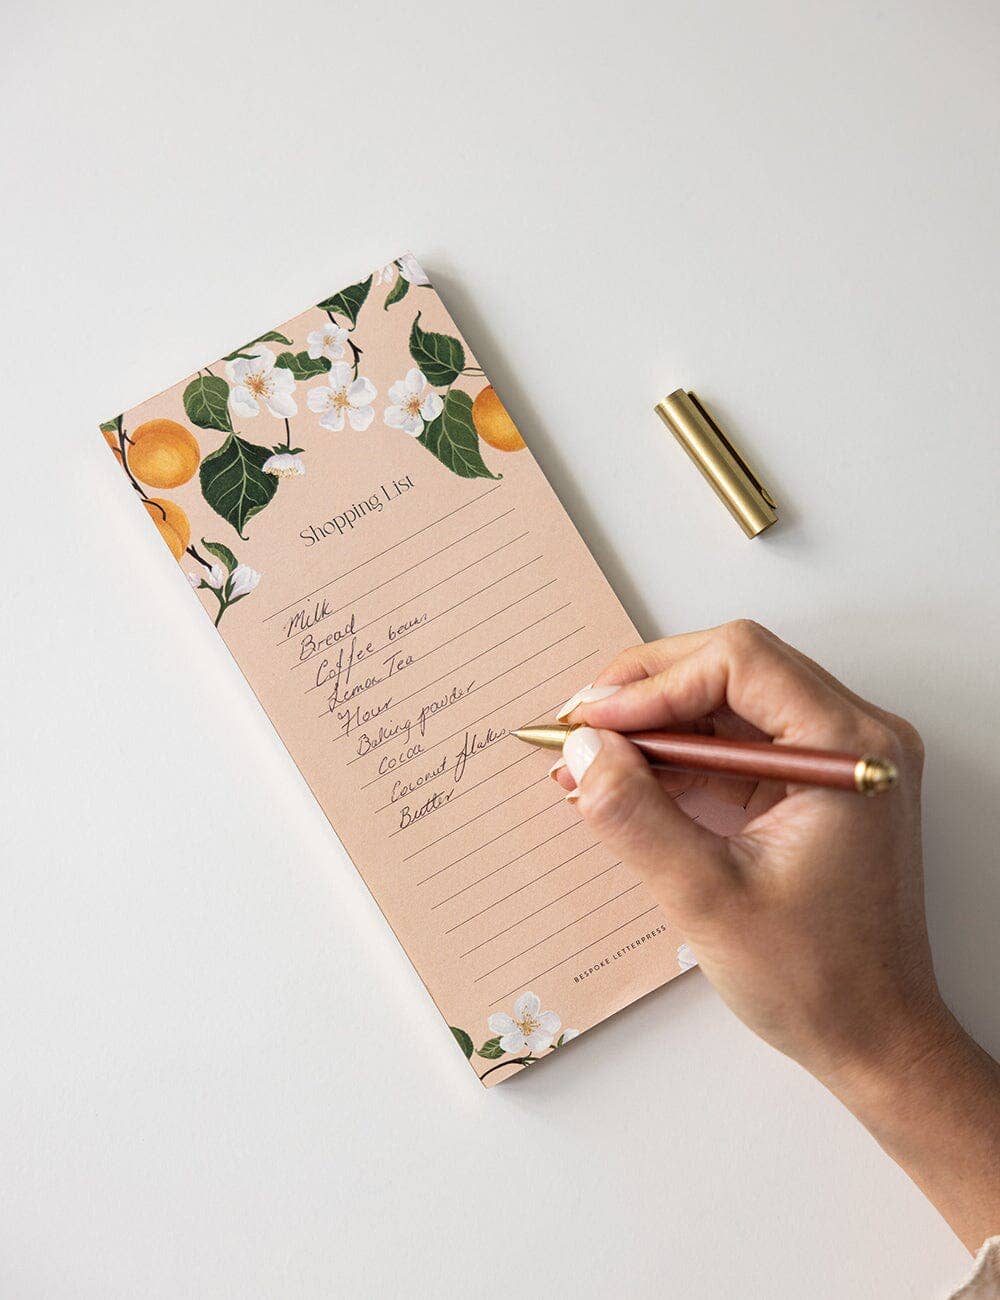 Shopping List
Milk
Bread
Coffee beans
Lemon Tea
Flour
Baking powder
Cocoa
Coconut flakes
Butter
BESPOKE LETTERPRESS